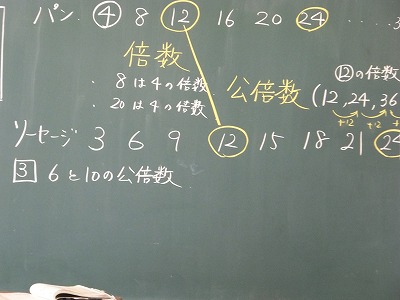 パン. 4 8 12 16 20 24 ・・・・・3
倍数
・ 8は4の倍数
・ 20は4の倍数
公倍数
⑫の倍数
(12,24,36
+12 +12 +
ソーセージ 3 6 9 12 15 18 21 24
3 6と10の公倍数